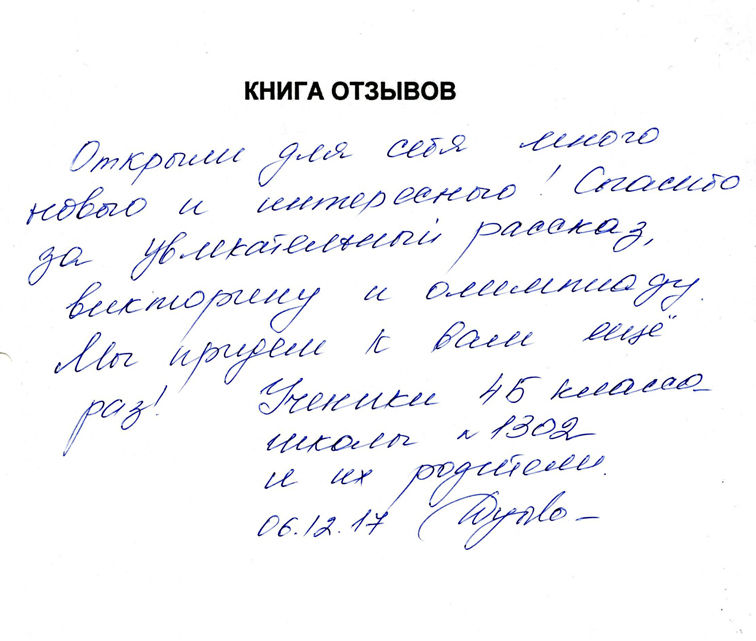 КНИГА ОТЗЫВОВ
Открыли для себя много
нового и интересного! Спасибо
за увлекательный рассказ,
викторину и олимпиаду.
Мы придем к вам ещё
раз! Ученики 4Б класса
школы №1302
и их родители.
06.12.17